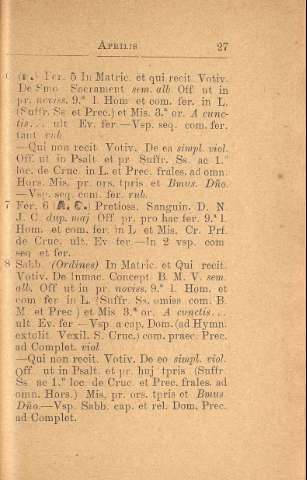 APRILIS 27
6 Fer. 5 In Matric. et qui recit. Votiv.
De Smo Sacrament sem. alb. Off ut in
pr. noviss. 9.ª l. Hom et com. fer. in L.
(Suffr. Ss et Prec.) et Mis. 3.ª or. A cunc-
tis... ult Ev. fer —Vsp. seq. com. fer.
tant rub
—Qui non recit Votiv. De ea simpl. viol.
Off. ut in Psalt et pr Suffr. Ss. ac 1.º
loc. de Cruc. in L. et Prec. frales. ad omn.
Hors. Mis. pr. ors. tpris et Bmus. Dño.
—Vsp. seq. com. fer. rub.
7 Fer. 6 (A. C.) Pretioss. Sanguin. D. N
J. C dup. maj Off. pr. pro hac fer. 9.ª l.
Hom. et com. fer. in L et Mis. Cr. Prf.
de Cruc. ult. Ev fer —In 2 vsp. com
seq et fer.
8 Sabb. (Ordines) In Matric. et Qui recit.
Votiv. De Inmac. Concept B. M. V. sem.
alb. Off ut in pr. noviss. 9.ª l. Hom. et
com fer in L. (Suffr. Ss. omiss com. B.
M et Prec) et Mis 3.ª or. A cunctis...
ult Ev. fer —Vsp a cap. Dom. (ad Hymn.
extolit. Vexil. S. Cruc.) com. praec. Prec.
ad Complet. viol
—Qui non recit. Votiv. De eo simpl. viol.
Off ut in Psalt. et pr. huj tpris (Suffr.
Ss ac 1.º loc. de Cruc. et Prec. frales. ad
omn. Hors.) Mis. pr. ors. tpris et Bmus
Dño.—Vsp. Sabb. cap. et rel. Dom. Prec.
ad Complet.